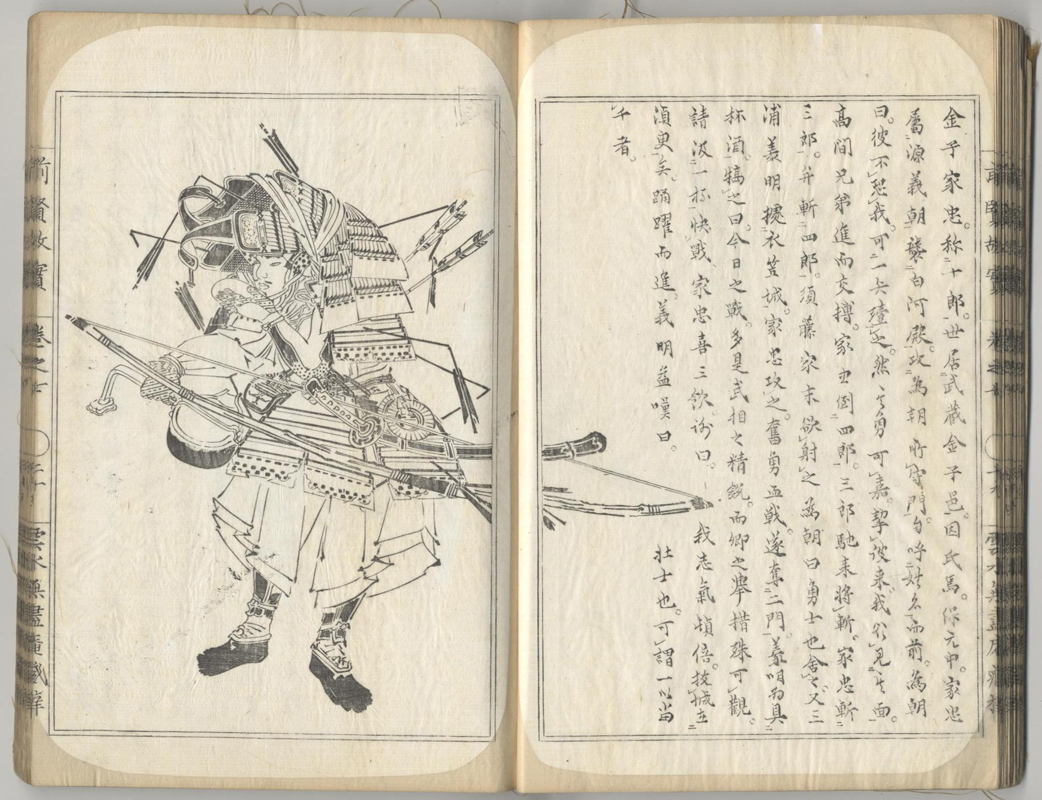 金子家忠。称十郎。世居武蔵金子邑。因氏焉。保元中。家忠
属源義朝。襲白河殿。攻為朝所守門。自呼姓名而前。為朝
曰。彼不恐我。可一矢殪之。然其勇可嘉。挈彼来。我欲見其面。
高間兄弟進而交搏。家忠倒四郎。三郎馳来将斬。家忠斬
三郎。并斬四郎。須藤家末欲射之。為朝曰勇士也。舎之。又三
浦義明拠衣笠城。家忠攻之。奮勇血戦。遂奪二門。義明為具
杯酒。犒之曰。今日之戦。多是武相之精鋭。而卿之挙措殊可観。
請汲一杯快戦。家忠喜三飲謝曰。我志気頓倍。抜城在
須臾矣。踊躍而進。義明益嘆曰。壮士也。可謂一以当
千者。
前賢故實
巻之七
雲水無盡庵蔵